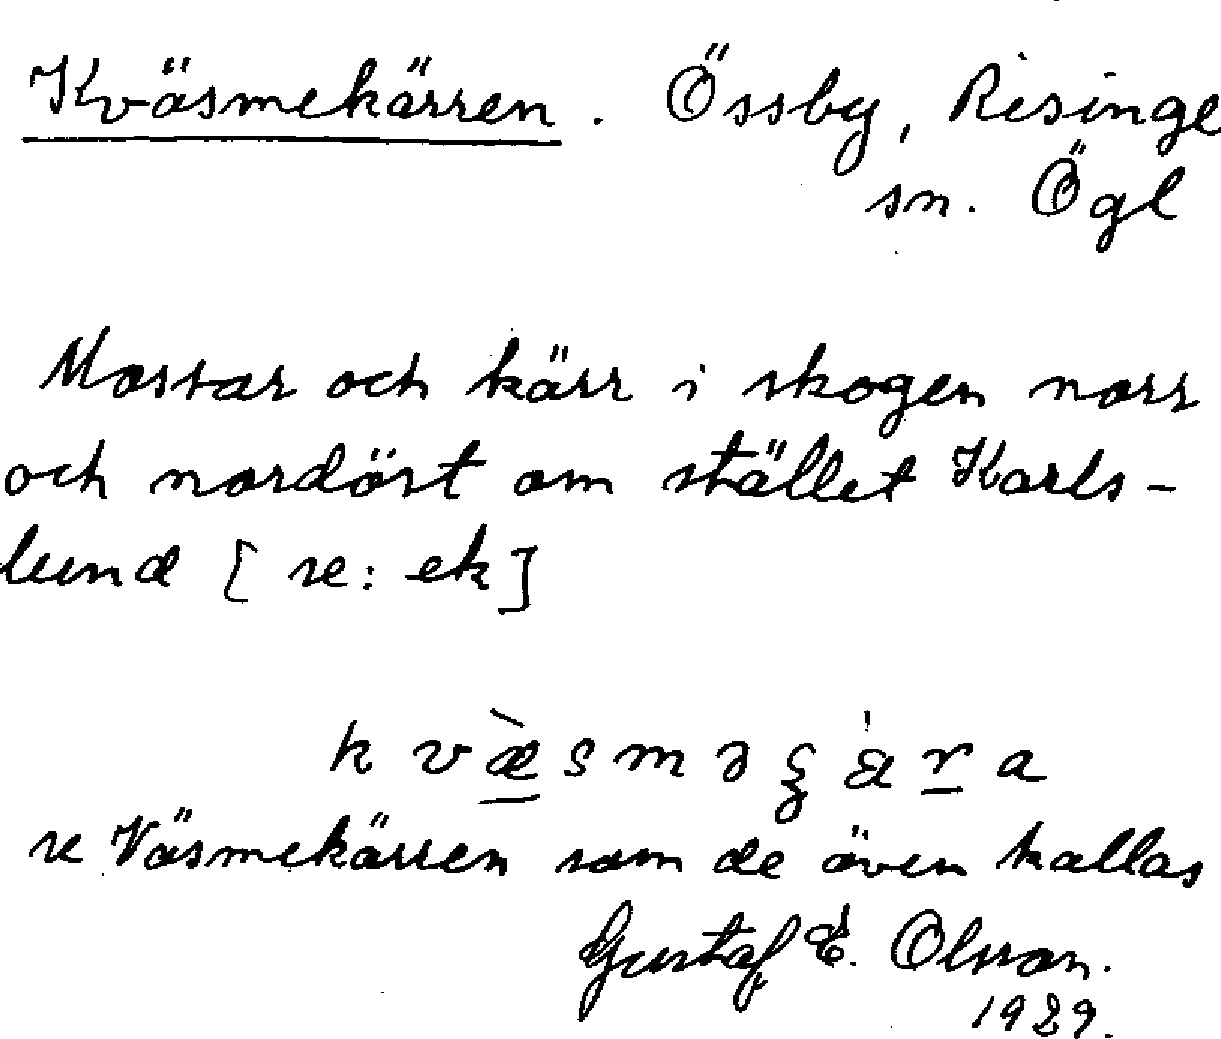 Kväsmekärren. Össby, Risinge
sn. Ögl
Mossar och kärr i skogen norr
och nordöst om stället Karls-
lund [se: ek]
kvæ̀smǝ
se Väsmekärren som de även kallas
Gustaf E. Olsson.
1929.